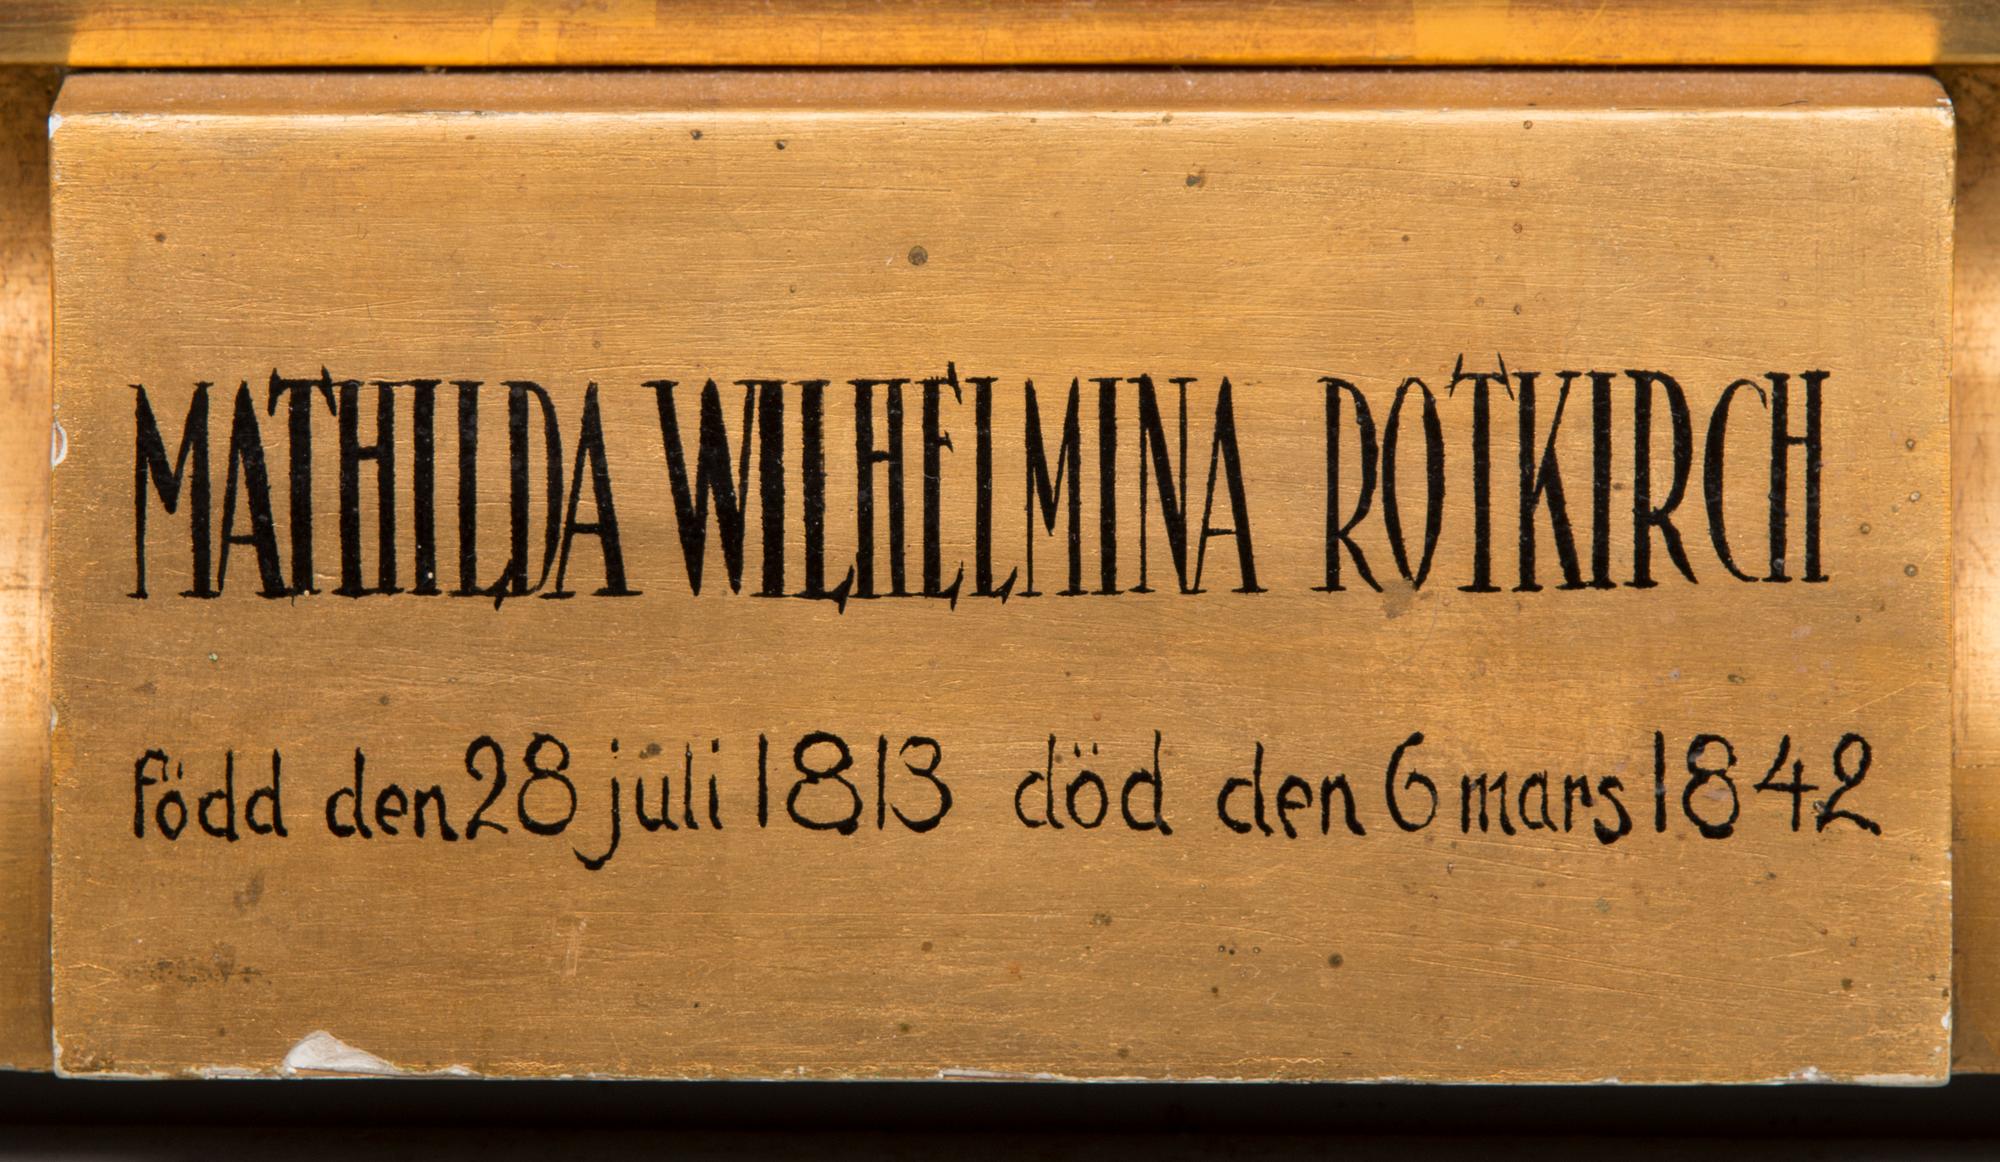 MATHILDA WILHELMINA ROTKIRCH
född den 28 juli 1813 död den 6 mars 1842